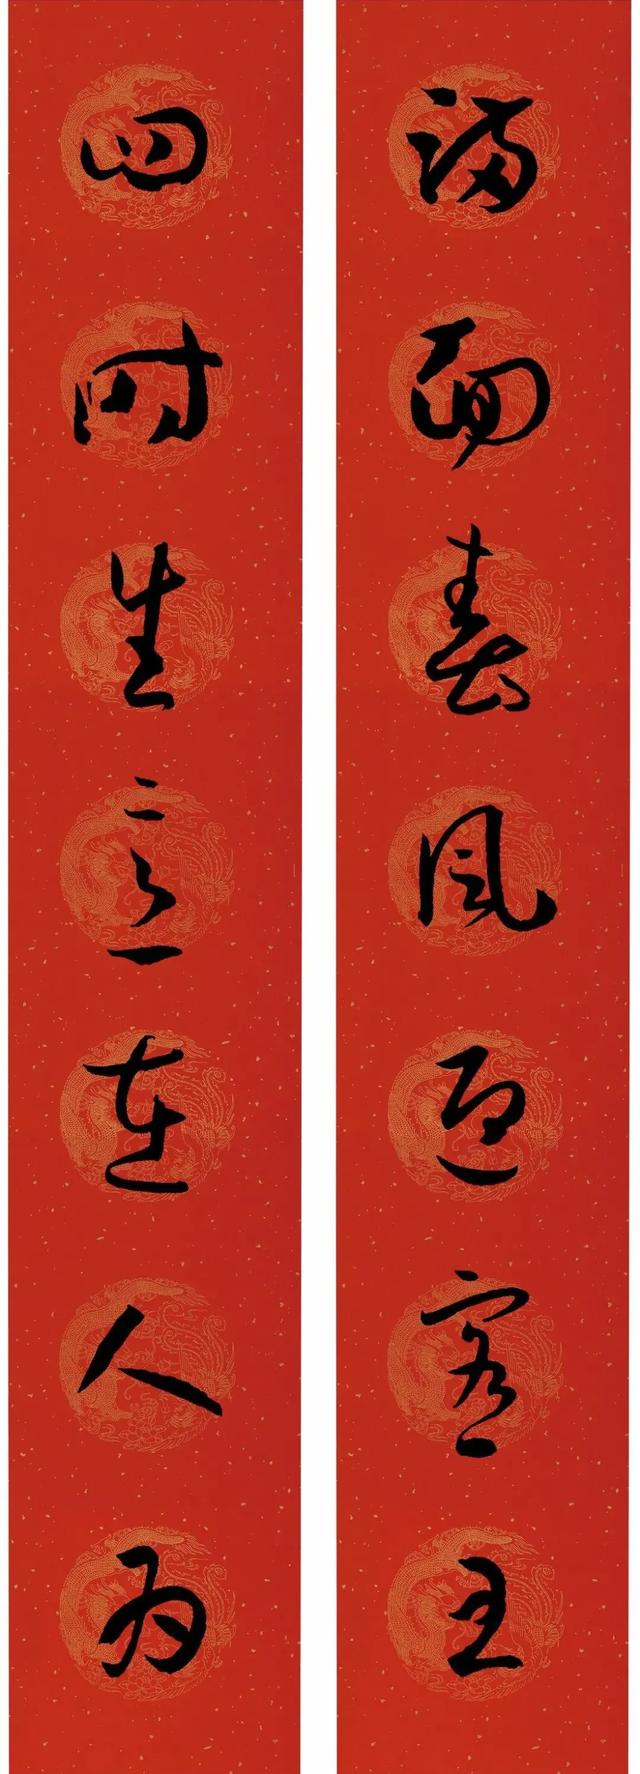 满面春风迎客至
四时生意在人为